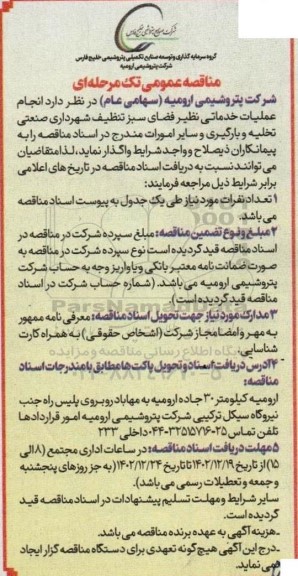 شرکت صنایع پتروشیمی خلیج فارس
گروه سرمایه گذاری و توسعه صنایع تکمیلی پتروشیمی خلیج فارس
شرکت پتروشیمی ارومیه
مناقصه عمومی تک مرحله‌ای
شرکت پتروشیمی ارومیه (سهامی عام) در نظر دارد انجام
عملیات خدماتی نظیر فضای سبز تنظیف شهرداری صنعتی
تخلیه و بارگیری و سایر امورات مندرج در اسناد مناقصه را به
پیمانکاران ذیصلاح و واجد شرایط واگذار نماید، لذا متقاضیان
می‌توانند نسبت به دریافت اسناد مناقصه در تاریخ های اعلامی
برابر شرایط ذیل مراجعه فرمایند:
۱ تعداد نفرات مورد نیاز طی یک جدول به پیوست اسناد مناقصه
می باشد.
۲ مبلغ و نوع تضمین مناقصه: مبلغ سپرده شرکت در مناقصه در
اسناد مناقصه قید گردیده است نوع سپرده شرکت در مناقصه به
صورت ضمانت نامه معتبر بانکی و یا واریز وجه به حساب شرکت
پتروشیمی ارومیه می باشد. (شماره حساب شرکت در اسناد
مناقصه قید گردیده است).
۳ مدارک مورد نیاز جهت تحویل اسناد مناقصه: معرفی نامه ممهور
به مهر و امضا مجاز شرکت (اشخاص حقوقی) به همراه کارت
شناسایی.
۴ آدرس دریافت اسناد و تحویل پاکت ها مطابق با مندرجات اسناد
مناقصه:
ارومیه کیلومتر ۳۰ جاده ارومیه به مهاباد روبروی پلیس راه جنب
نیروگاه سیکل ترکیبی شرکت پتروشیمی ارومیه امور قراردادها
تلفن تماس ۳۲۵۱۵۷۱۶۰۲۵-۰۴۴ داخلی ۲۳۳
۵ مهلت دریافت اسناد مناقصه: در ساعات اداری مجتمع (۸ الی
۱۵) از تاریخ ۱۴۰۲/۱۲/۱۹ تا تاریخ ۱۴۰۲/۱۲/۲۴ (به جز روزهای پنجشنبه
و جمعه و تعطیلات رسمی می باشد).
سایر شرایط و مهلت تسلیم پیشنهادات در اسناد مناقصه قید
گردیده است.
-هزینه آگهی به عهده برنده مناقصه می باشد.
-درج این آگهی هیچ گونه تعهدی برای دستگاه مناقصه گزار ایجاد
نمی نماید.